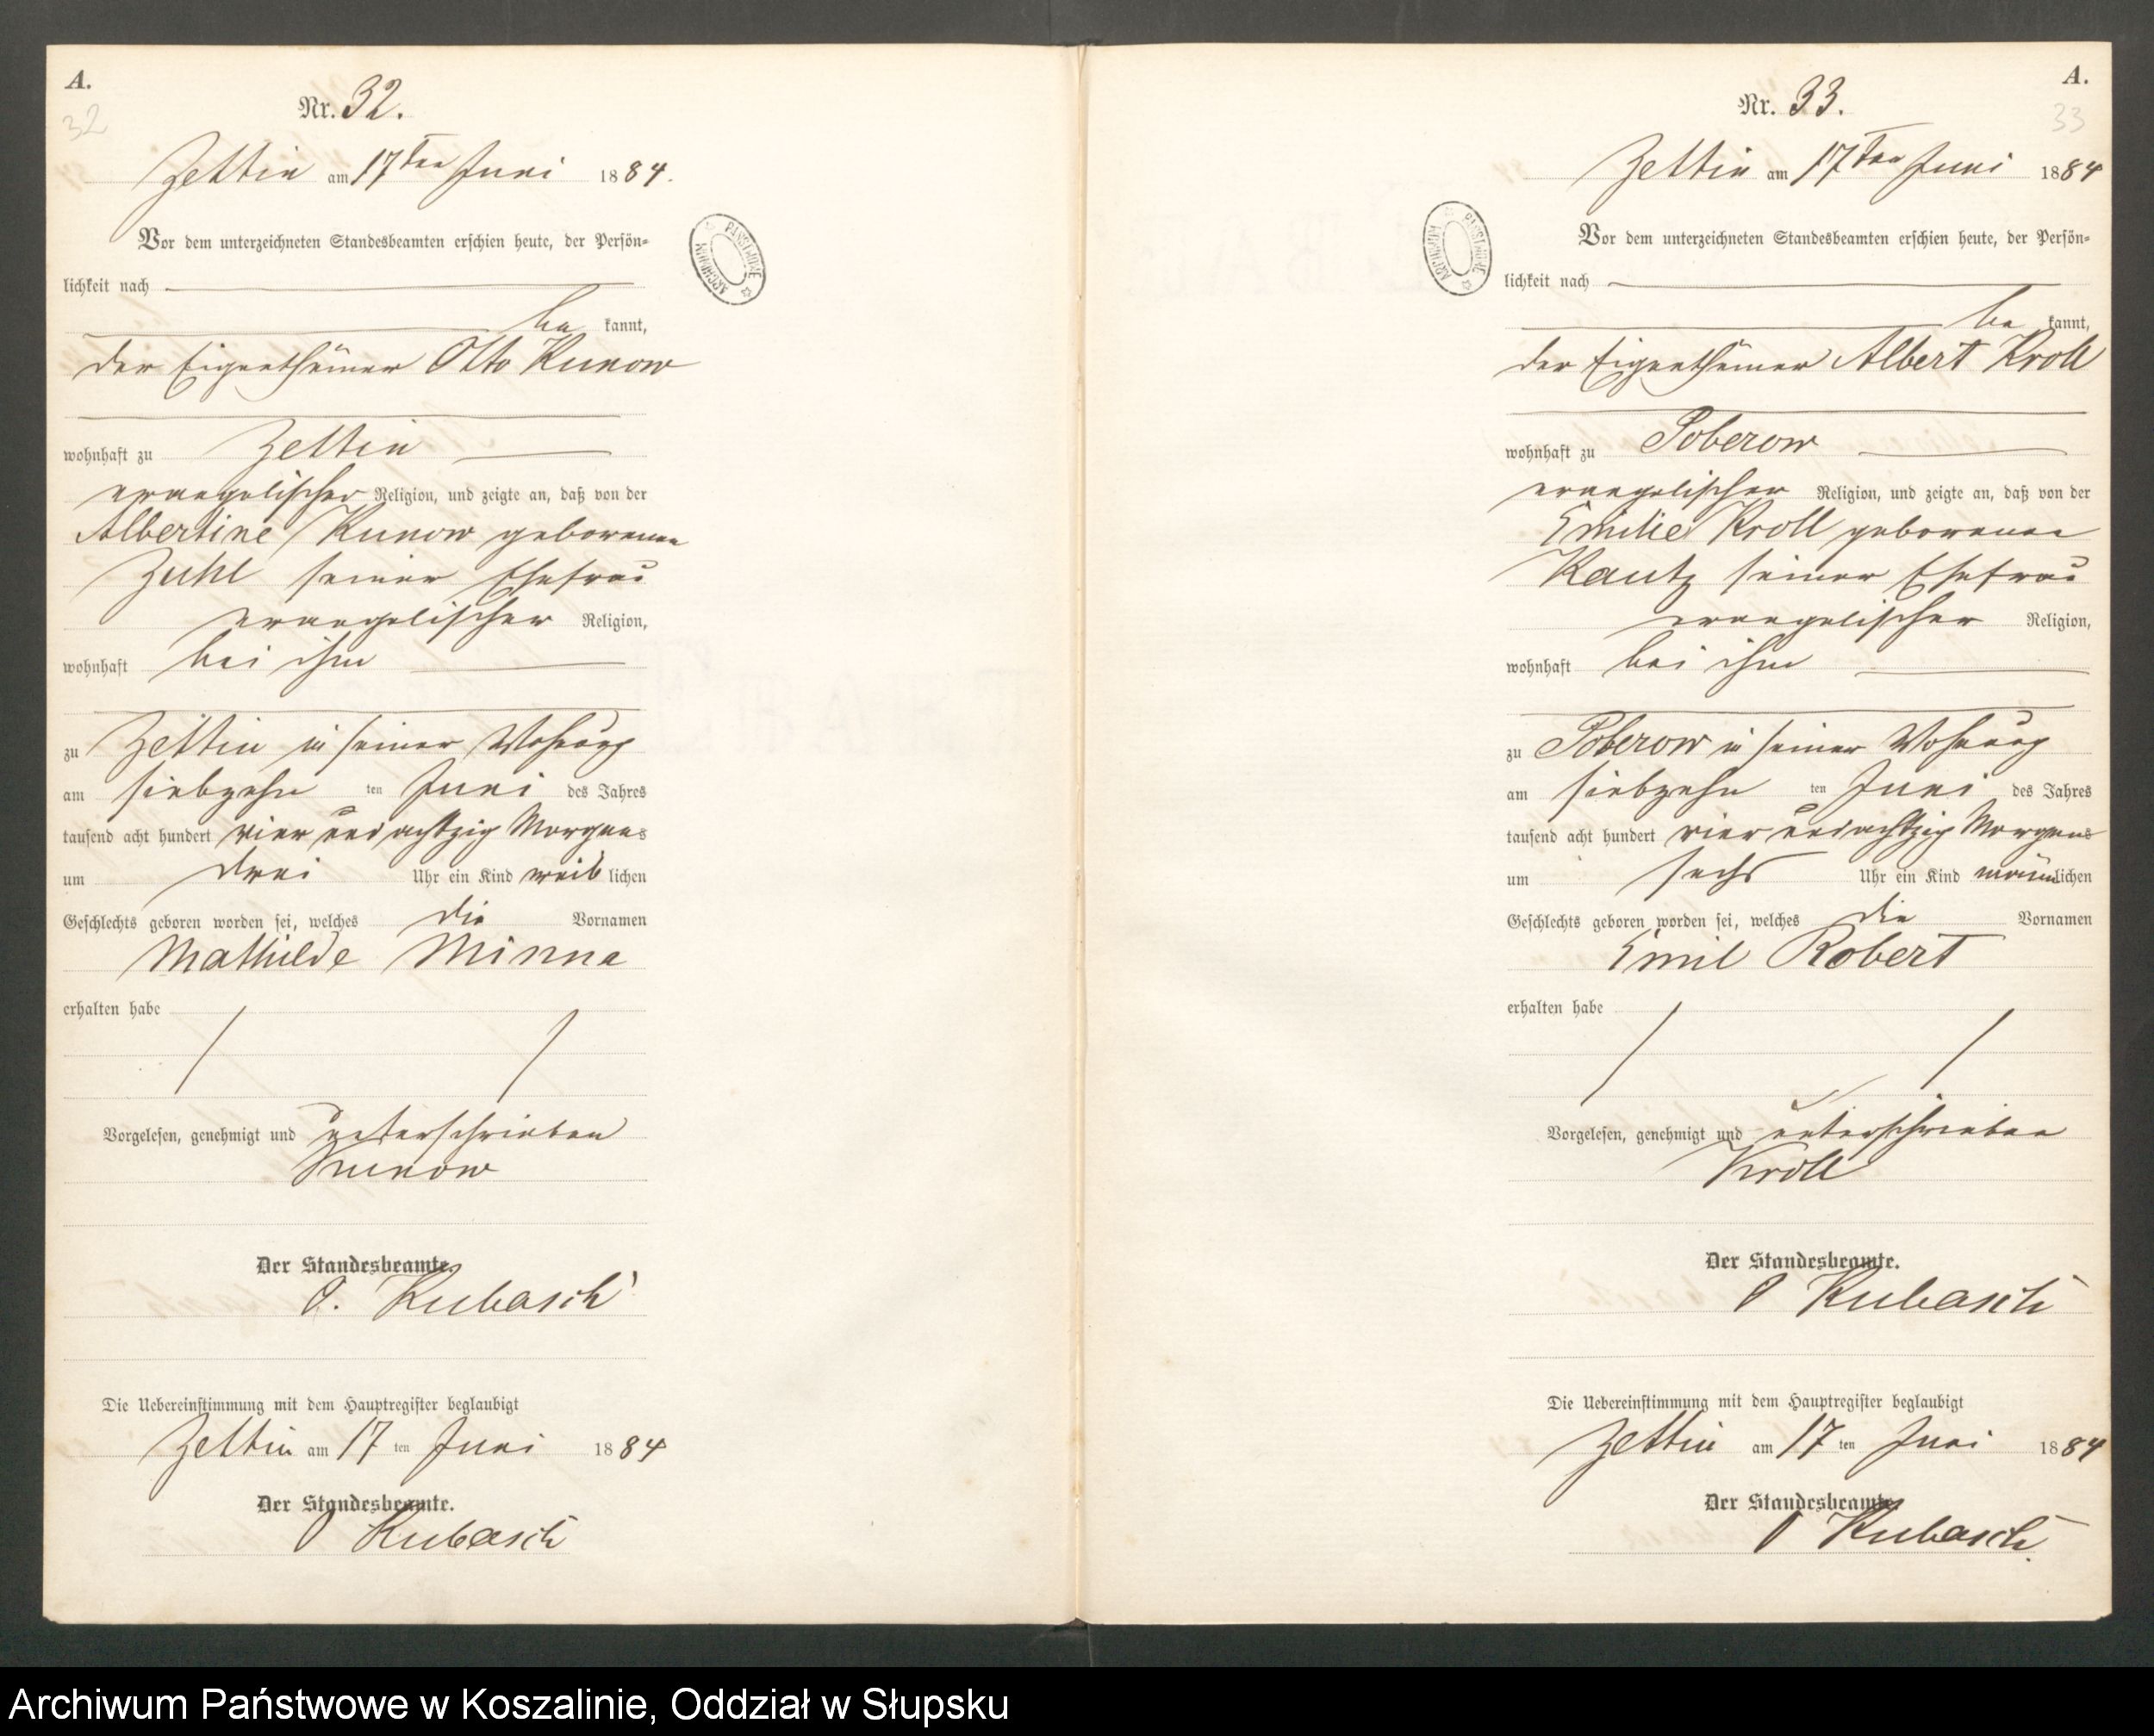 A.
32
Nr. 32.
Zettin am 17ten Juni 1884.
Vor dem unterzeichneten Standesbeamten erschien heute, der Persön-
lichkeit nach
be kannt,
der Eigenthümer Otto Kunow
wohnhaft zu Zettin
evangelischer Religion, und zeigte an, daß von der
Albertine Kunow geborenen
Zuhl seiner Ehefrau
evangelischer Religion,
wohnhaft bei ihm
zu Zettin in seiner Wohnung
am siebzehn ten Juni des Jahres
tausend acht hundert vier und achtzig Morgens
um drei Uhr ein Kind weib lichen
Geschlechts geboren worden sei, welches die Vornamen
Mathilde Minna
erhalten habe
Vorgelesen, genehmigt und unterschrieben
Kunow
Der Standesbeamte.
O. Kubasch
Die Uebereinstimmung mit dem Hauptregister beglaubigt
Zettin am 17 ten Juni 1884
Der Standesbeamte.
O Kubasch
ARCHIWUM PAŃSTWOWE
A.
33
Nr. 33.
Zettin am 17ten Juni 1884
Vor dem unterzeichneten Standesbeamten erschien heute, der Persön-
lichkeit nach
be kannt,
der Eigenthümer Albert Kroll
wohnhaft zu Poberow
evangelischer Religion, und zeigte an, daß von der
Emilie Kroll geborenen
Kautz seiner Ehefrau
evangelischer Religion,
wohnhaft bei ihm
zu Poberow in seiner Wohnung
am siebzehn ten Juni des Jahres
tausend acht hundert vier und achtzig Morgens
um sechs Uhr ein Kind männlichen
Geschlechts geboren worden sei, welches die Vornamen
Emil Robert
erhalten habe
Vorgelesen, genehmigt und unterschrieben
Kroll
Der Standesbeamte.
O Kubasch
Die Uebereinstimmung mit dem Hauptregister beglaubigt
Zettin am 17 ten Juni 1884
Der Standesbeamte.
O Kubasch.
ARCHIWUM PAŃSTWOWE
Archiwum Państwowe w Koszalinie, Oddział w Słupsku